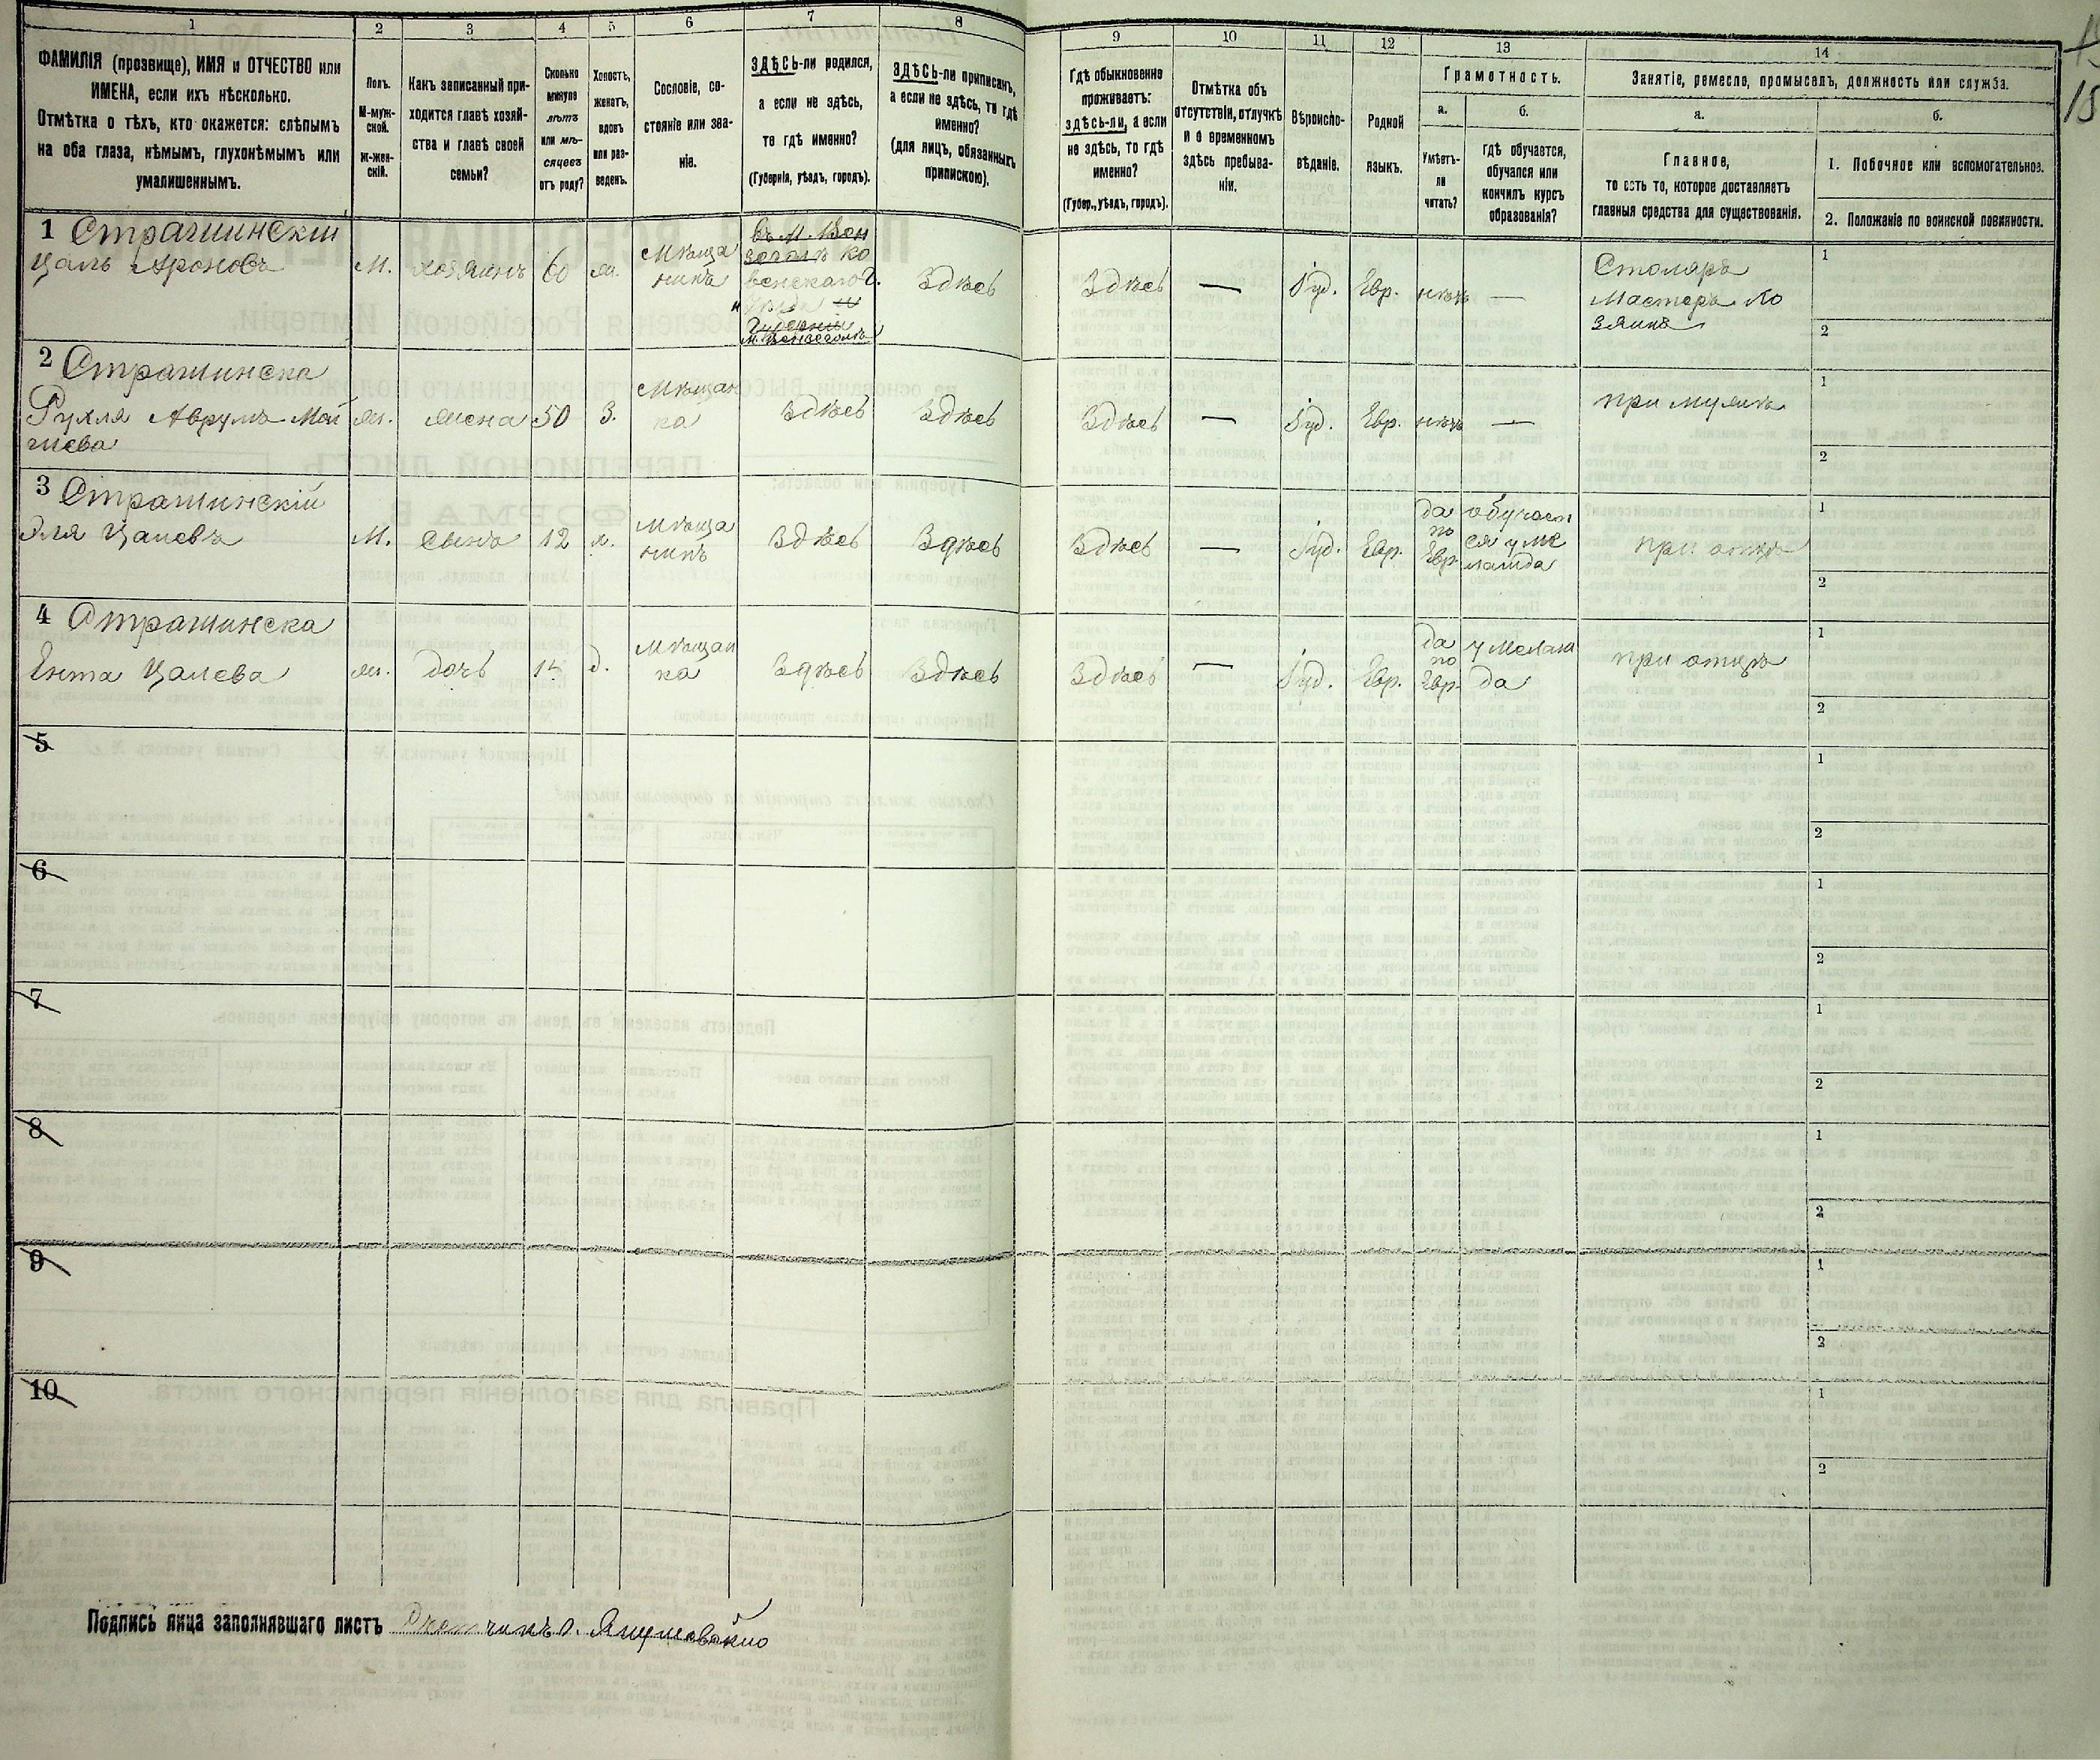 1 2 3 4 5 6 7 8 9 10 11 12 13 14
ФАМИЛІЯ (прозвище), ИМЯ и ОТЧЕСТВО или
ИМЕНА, если ихъ нѣсколько.
Отмѣтка о тѣхъ, кто окажется: слѣпымъ
на оба глаза, нѣмымъ, глухонѣмымъ или
умалишеннымъ.
Полъ.
М-муж-
ской.
Ж-жен-
скій.
Какъ записанный при-
ходится главѣ хозяй-
ства и главѣ своей
семьи?
Сколько
минуло
лѣтъ
или мѣ-
сяцевъ
отъ роду?
Холостъ,
женатъ,
вдовъ
или раз-
веденъ.
Сословіе, со-
стояніе или зва-
ніе.
ЗДѢСЬ-ли родился,
а если не здѣсь,
то гдѣ именно?
(Губернія, уѣздъ, городъ).
ЗДѢСЬ-ли приписанъ,
а если не здѣсь, то гдѣ
именно?
(для лицъ, обязанныхъ
припискою).
Гдѣ обыкновенно
проживаетъ:
здѣсь-ли, а если
не здѣсь, то гдѣ
именно?
(Губер., уѣздъ, городъ).
Отмѣтка объ
отсутствіи, отлучкѣ
и о временномъ
здѣсь пребыва-
ніи.
Вѣроиспо-
вѣданіе.
Родной
языкъ.
Грамотность.
а.
б.
Умѣетъ-
ли
читать?
гдѣ обучается,
обучался или
кончилъ курсъ
образованія?
Занятіе, ремесло, промыселъ, должность или служба.
а.
б.
Главное,
то есть то, которое доставляетъ
главныя средства для существованія.
1. Побочное или вспомогательное.
2. Положеніе по воинской повинности.
1 Страшинскій
Цаль Ароновъ
М.
хозяинъ
60
ж.
Мѣща
нинъ
Здѣсь
Здѣсь
—
Іуд.
Евр.
нѣтъ
—
Столяръ
Мастеръ Хо
зяинъ
1
2
2 Страшинска
Рухля Аврумъ-
жена
50
З.
Мѣщан
ка
Здѣсь
Здѣсь
Здѣсь
—
Іуд.
Евр.
нѣтъ
—
при мужѣ
1
2
3 Страшинскій
Эля Цалевъ
М.
сынъ
12
х.
Мѣща
нинъ
Здѣсь
Здѣсь
Здѣсь
—
Іуд.
Евр.
да
по
Евр.
обучает
ся у ме
ламда
при отцѣ
1
2
4 Страшинска
Ента Цалева
ж.
дочь
д.
Мѣщан
ка
Здѣсь
Здѣсь
Здѣсь
—
Іуд.
Евр.
да
по
Евр.
у Мелам
да
при отцѣ
1
2
5
1
2
6
1
2
7
1
2
8
1
2
9
1
2
10
1
2
Подпись лица заполнявшаго листъ